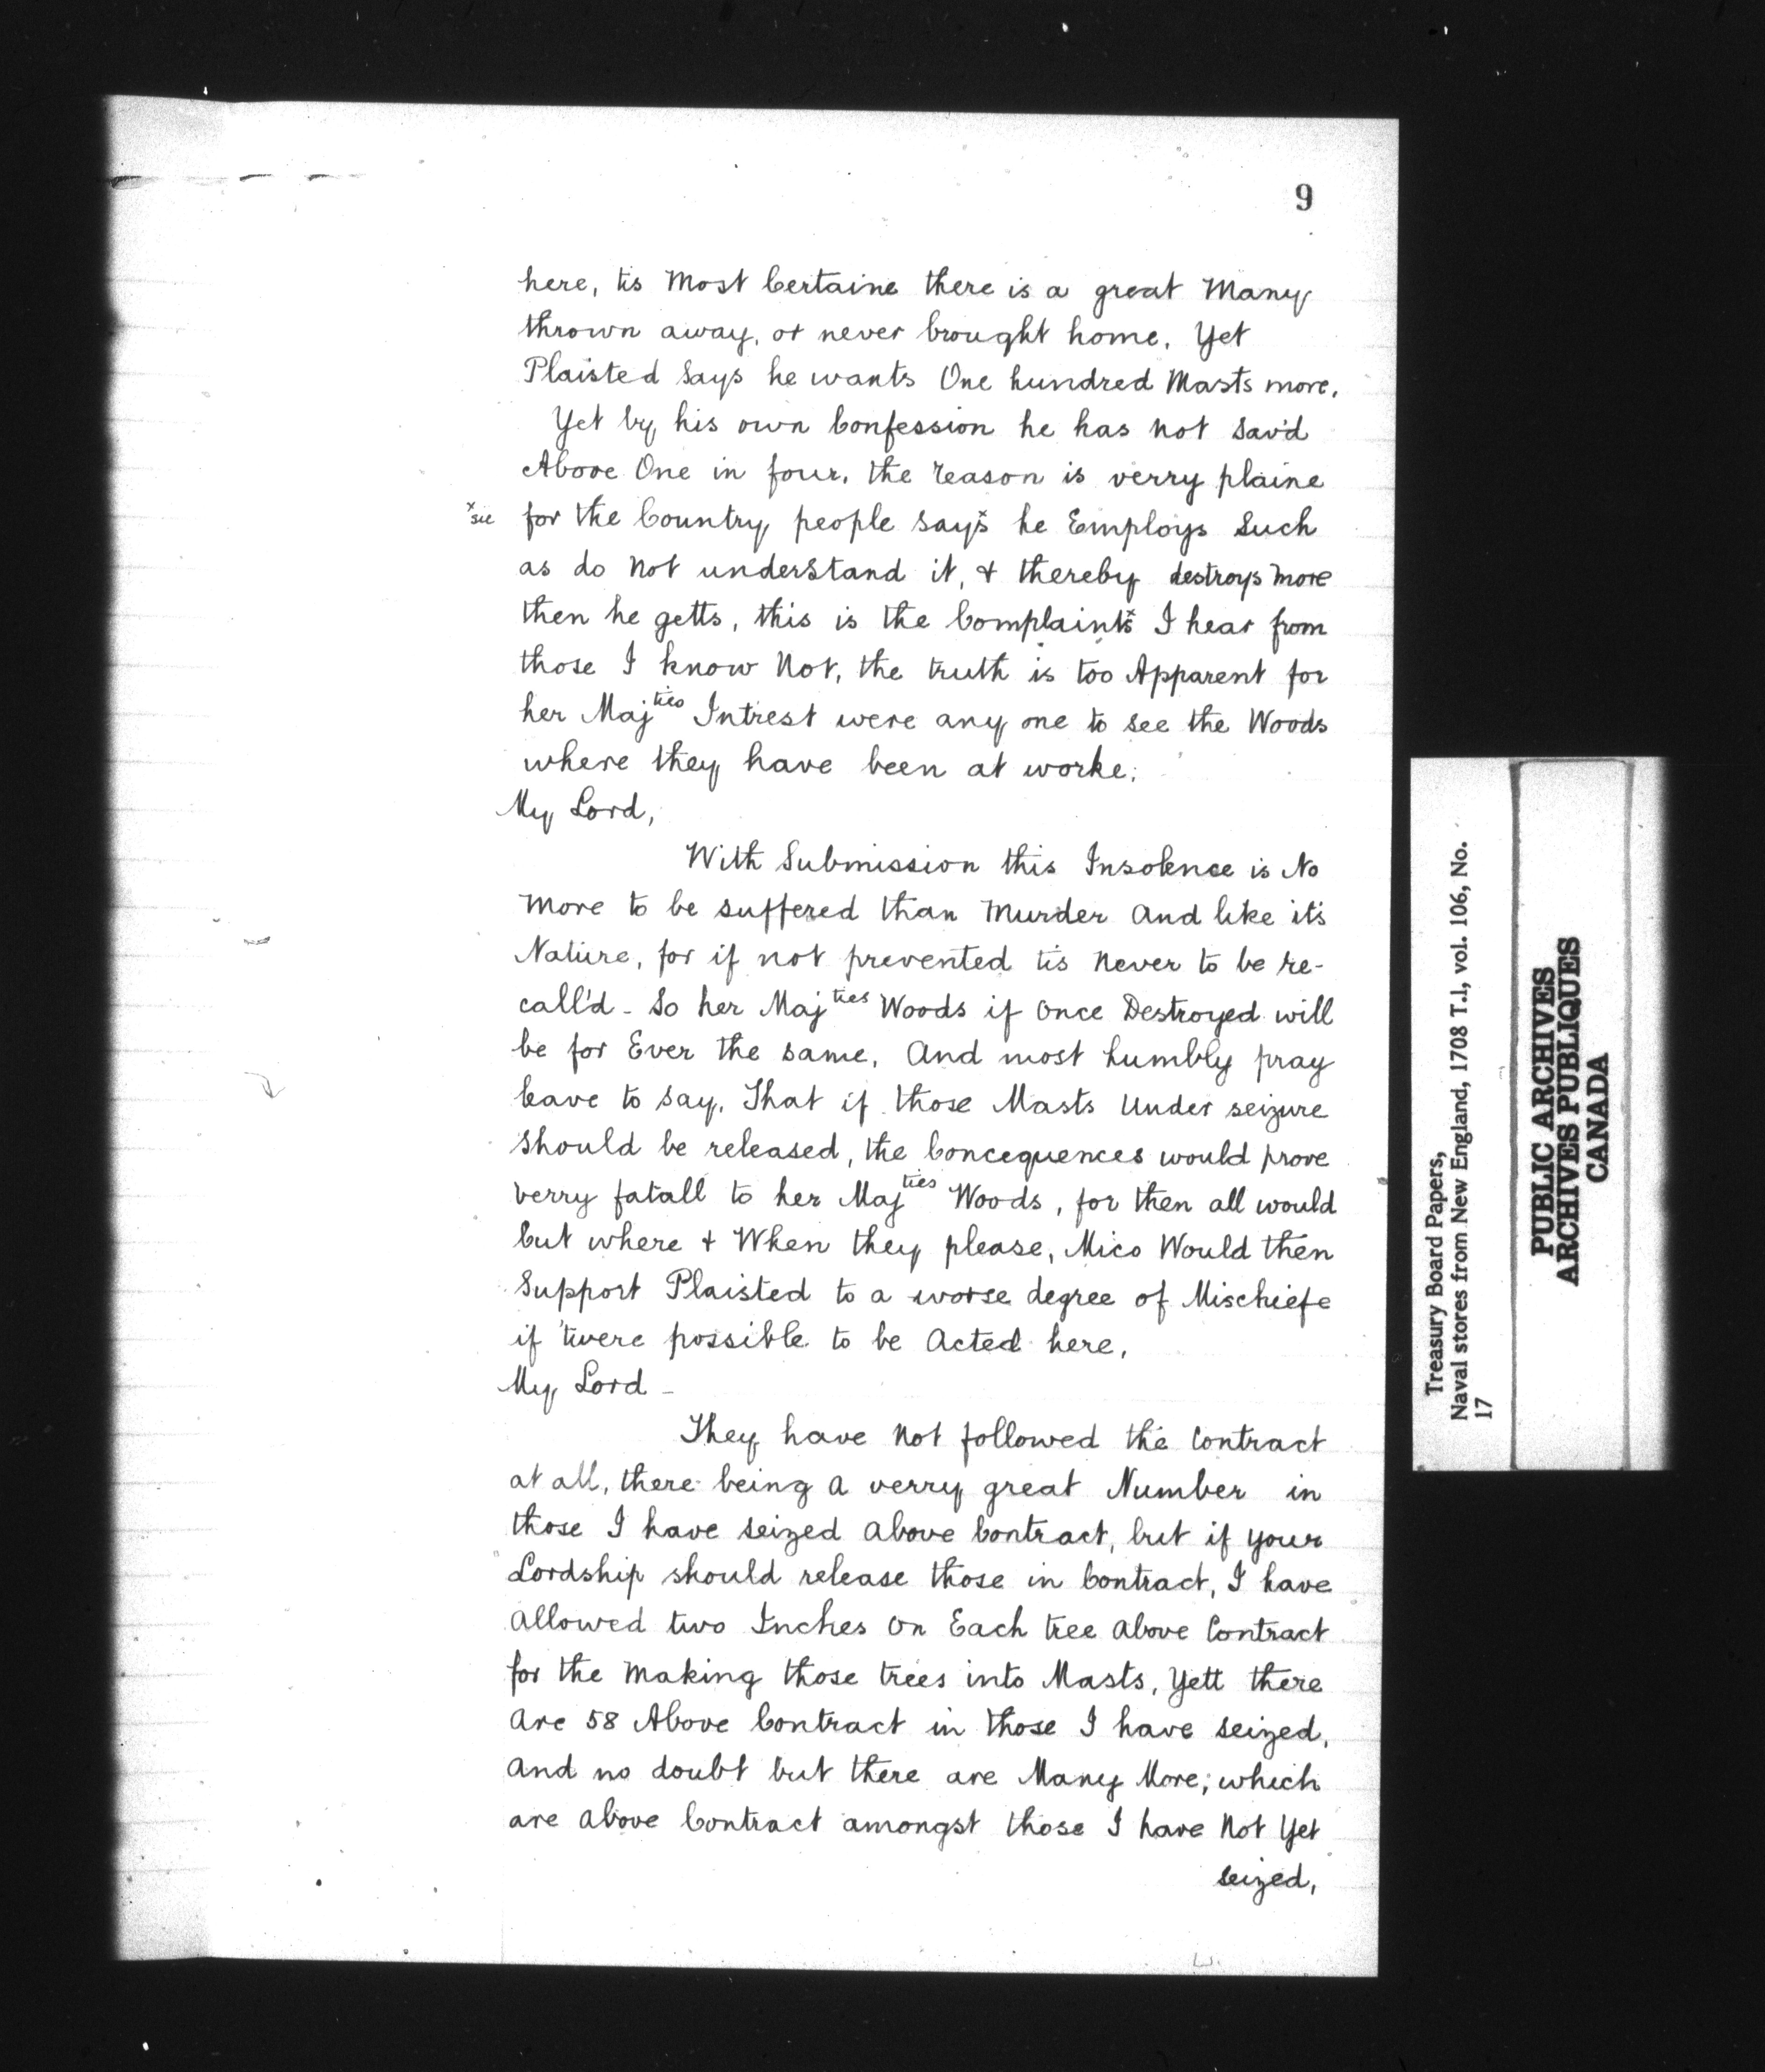 9
here, tis Most Certaine there is a great Many
thrown away, or never brought home, Yet
Plaisted Says he wants One hundred Masts more,
Yet by his own Confession he has not Sav'd
Above One in four, the reason is verry plaine
ˣsic for the Country people sayˣs he Employs Such
as do Not understand it, & thereby destroys More
then he getts, this is the Complaintˣs I hear from
those I know Not, the truth is too Apparent for
her Majties Intrest were any one to see the Woods
where they have been at worke;
My Lord,
With Submission this Insolence is No
more to be suffered than Murder And like it's
Nature, for if not prevented tis Never to be re-
call'd - So her Majties Woods if Once Destroyed will
be for Ever the same, And most humbly pray
leave to say, That if those Masts Under seizure
should be released, the Concequences would prove
verry fatall to her Majties Woods, for then all would
Cut where & When they please, Mico Would then
Support Plaisted to a worse degree of Mischiefe
if 'twere possible to be Acted here,
My Lord -
They have Not followed the Contract
at all, there being A verry great Number in
those I have seized Above Contract, but if your
Lordship should release those in Contract, I have
Allowed two Inches On Each tree Above Contract
for the Making those trees into Masts, Yett there
Are 58 Above Contract in those I have seized,
And no doubt but there are Many More; which
are Above Contract amongst those I have Not Yet
seized,
Treasury Board Papers,
Naval stores from New England, 1708 T.1, vol. 106, No.
17
PUBLIC ARCHIVES
ARCHIVES PUBLIQUES
CANADA